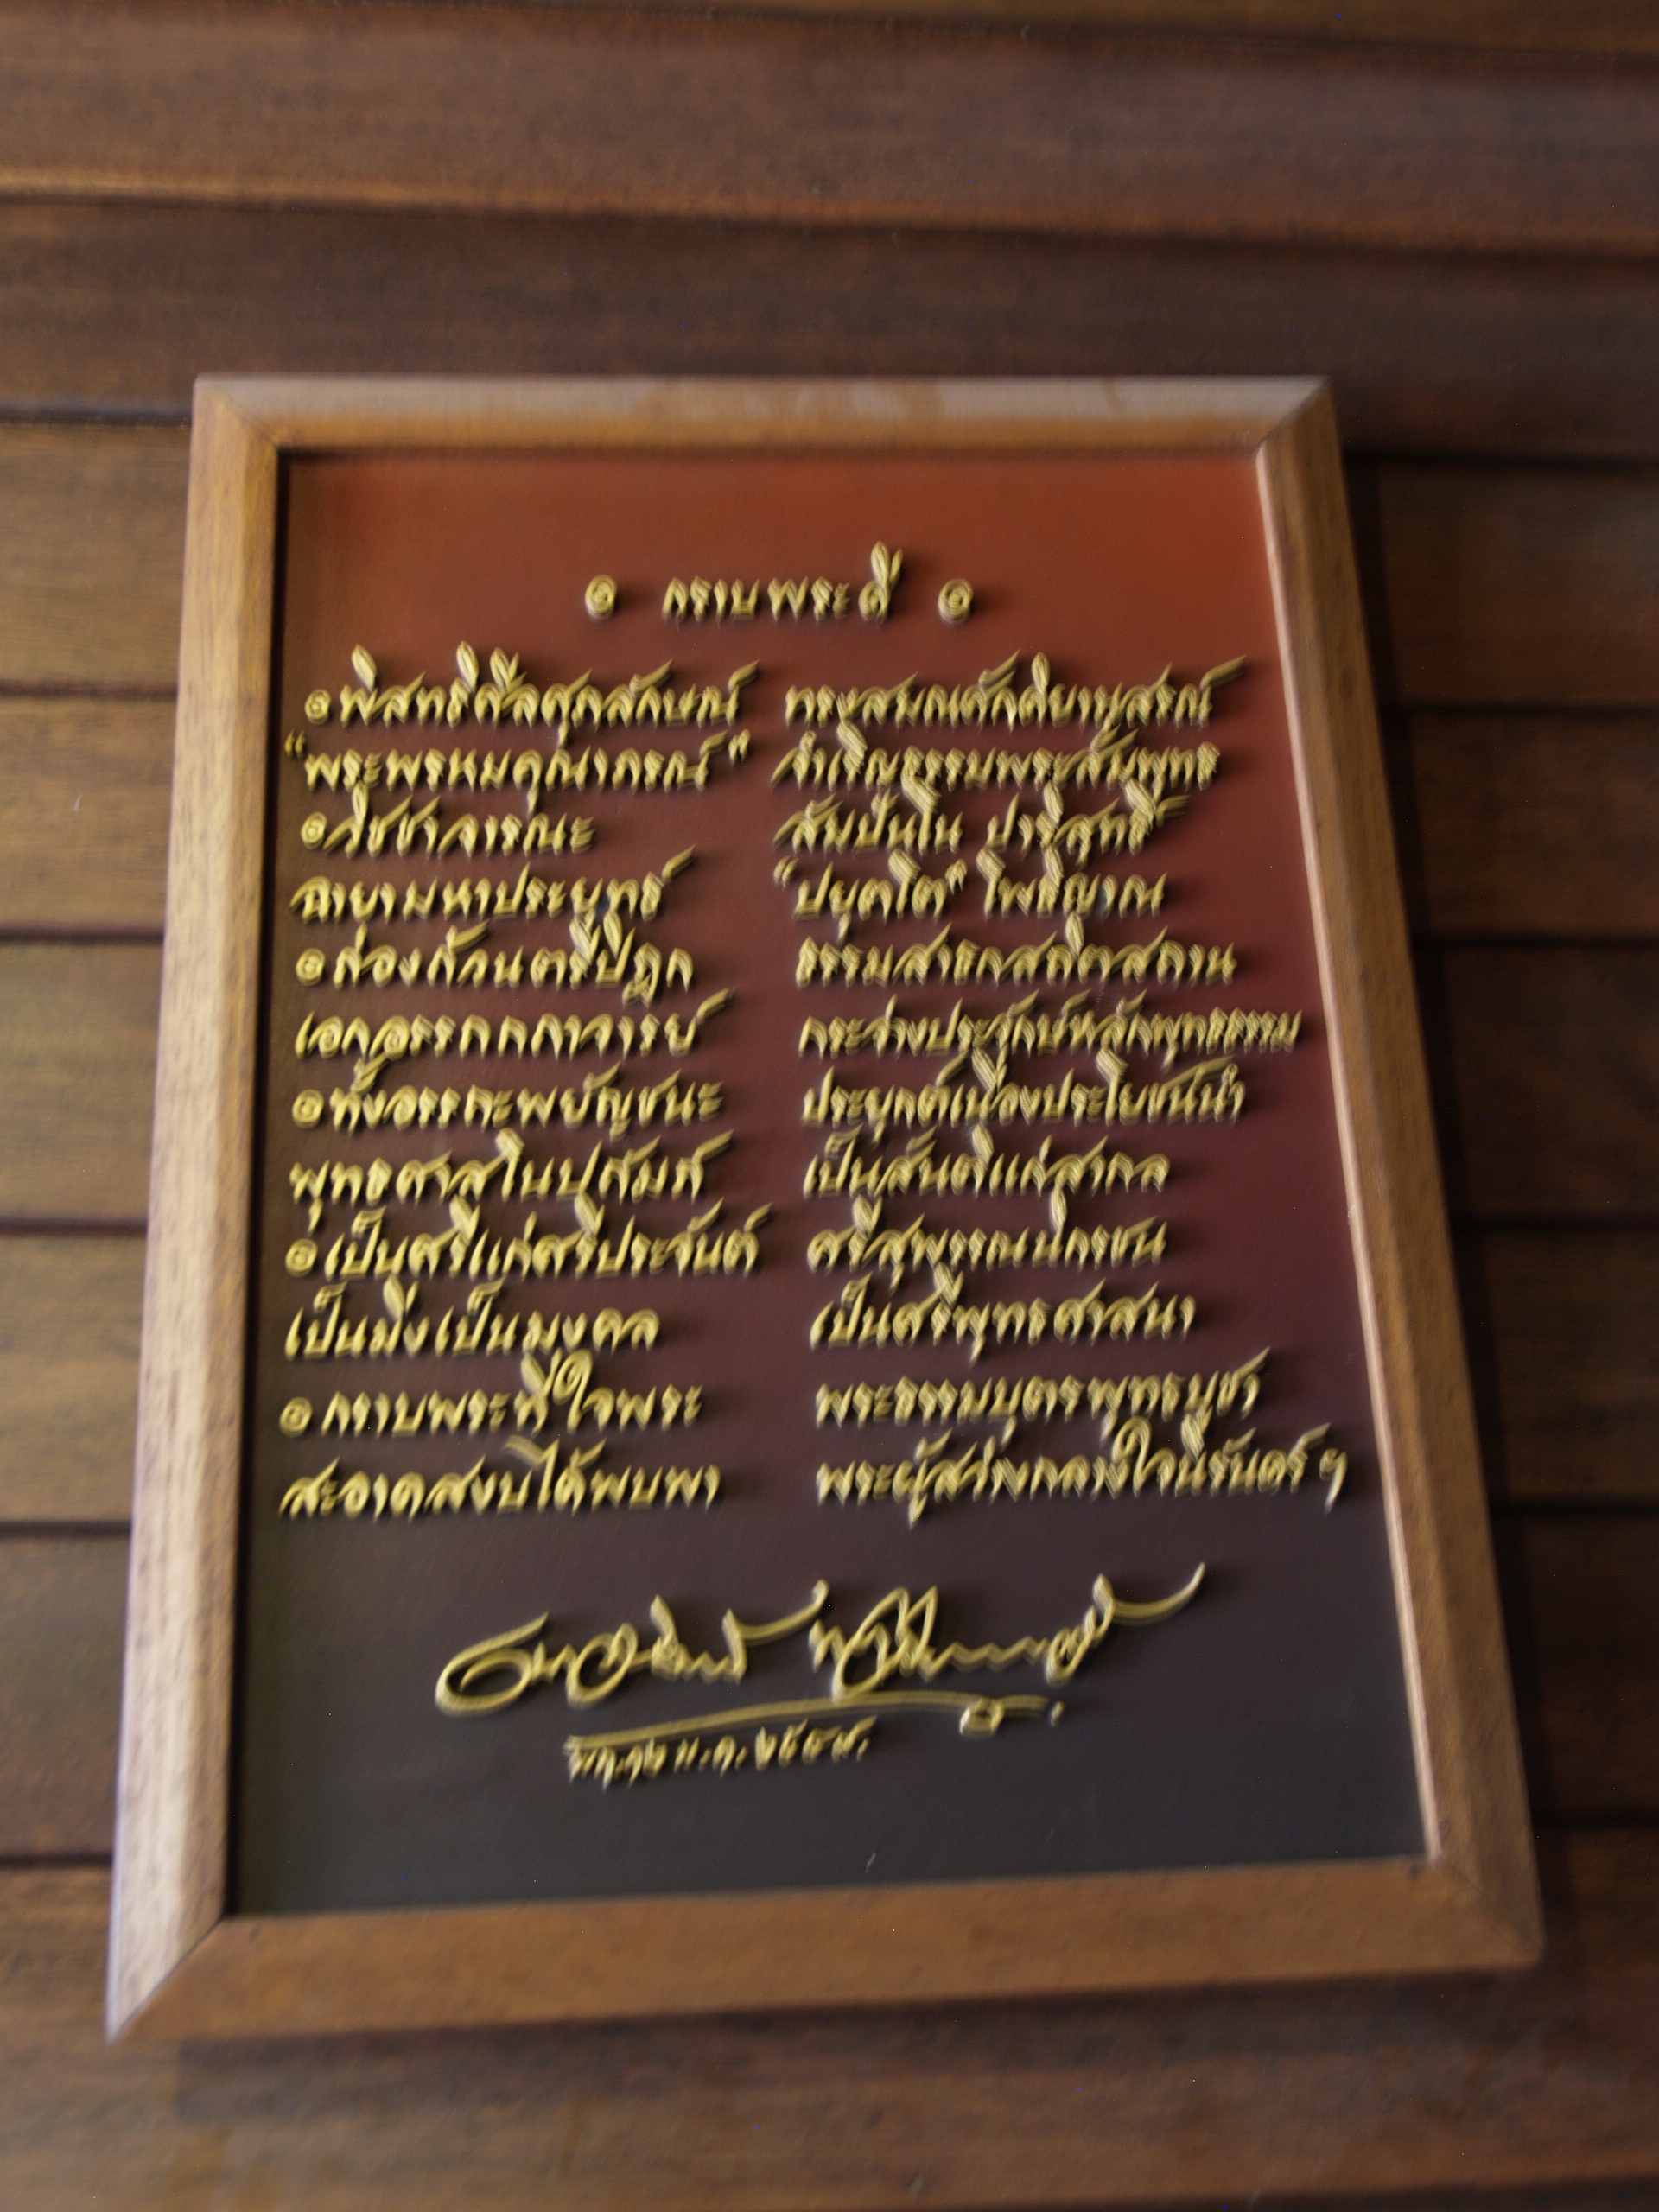 ๏ กราบพระดี ๏
๏ พิสุทธิ์ศีลศุภลักษณ์ ทรงสมณศักดิ์ยานุสรณ์
“พระพรหมคุณาภรณ์” สำเริญธรรมพระสัมพุทธ
๏ วิชชาจารณะ สัมปันโน ปาริสุทธิ์
ฉายามหาประยุทธ์ “ปยุตโต” โพธิญาณ
๏ ถ่องถ้วนตรีปิฎก ธรรมสาธกสถิตสถาน
เอกอรรถกถาจารย์ กระจ่างประจักษ์หลักพุทธธรรม
๏ ทั้งอรรถะพยัญชนะ ประยุกต์เนื่องประโยชน์นำ
พุทธศาสโนปถัมภ์ เป็นสันติแก่สากล
๏ เป็นศรีแก่ศรีประจันต์ ศรีสุพรรณนิกรชน
เป็นมิ่งเป็นมงคล เป็นศรีพุทธศาสนา
๏ กราบพระที่ใจพระ พระธรรมบุตรพุทธบูชา
สะอาดสงบได้พบพา พระผู้สว่างกลางใจนิรันดร์ ฯ